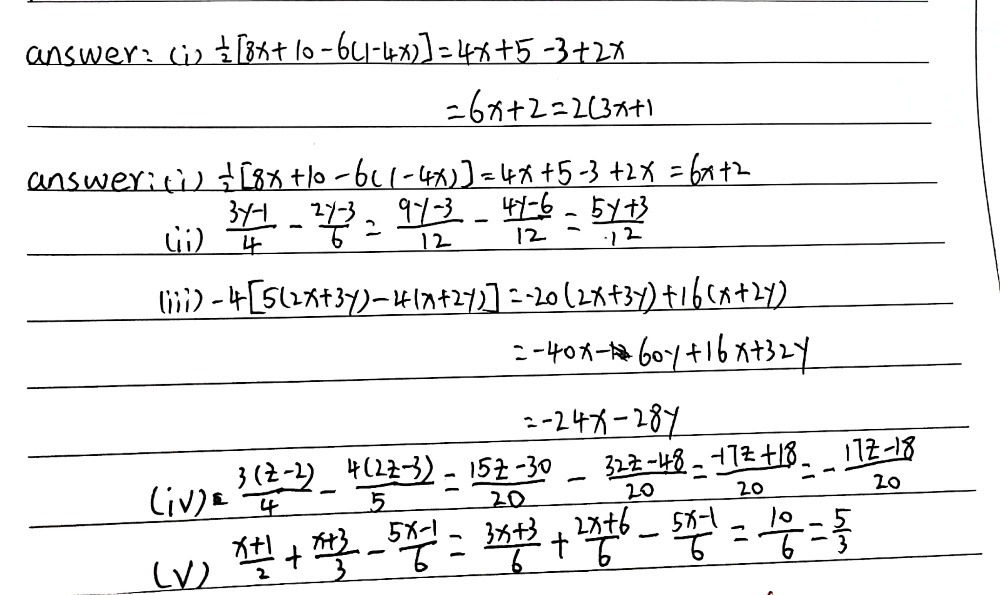 answer: (i) ½[8x+10-6(1-4x)]=4x+5-3+2x
=6x+2=2(3x+1
answer:(i) ½[8x+10-6(1-4x)]=4x+5-3+2x=6x+2
(ii) (3y-1)/4 - (2y-3)/6 = (9y-3)/12 - (4y-6)/12 = (5y+3)/12
(iii) -4[5(2x+3y)-4(x+2y)]=-20(2x+3y)+16(x+2y)
=-40x-60y+16x+32y
=-24x-28y
(iv) 3(z-2)/4 - 4(2z-3)/5 = (15z-30)/20 - (32z-48)/20 = (-17z+18)/20 = -(17z-18)/20
(v) (x+1)/2 + (x+3)/3 - (5x-1)/6 = (3x+3)/6 + (2x+6)/6 - (5x-1)/6 = 10/6 = 5/3